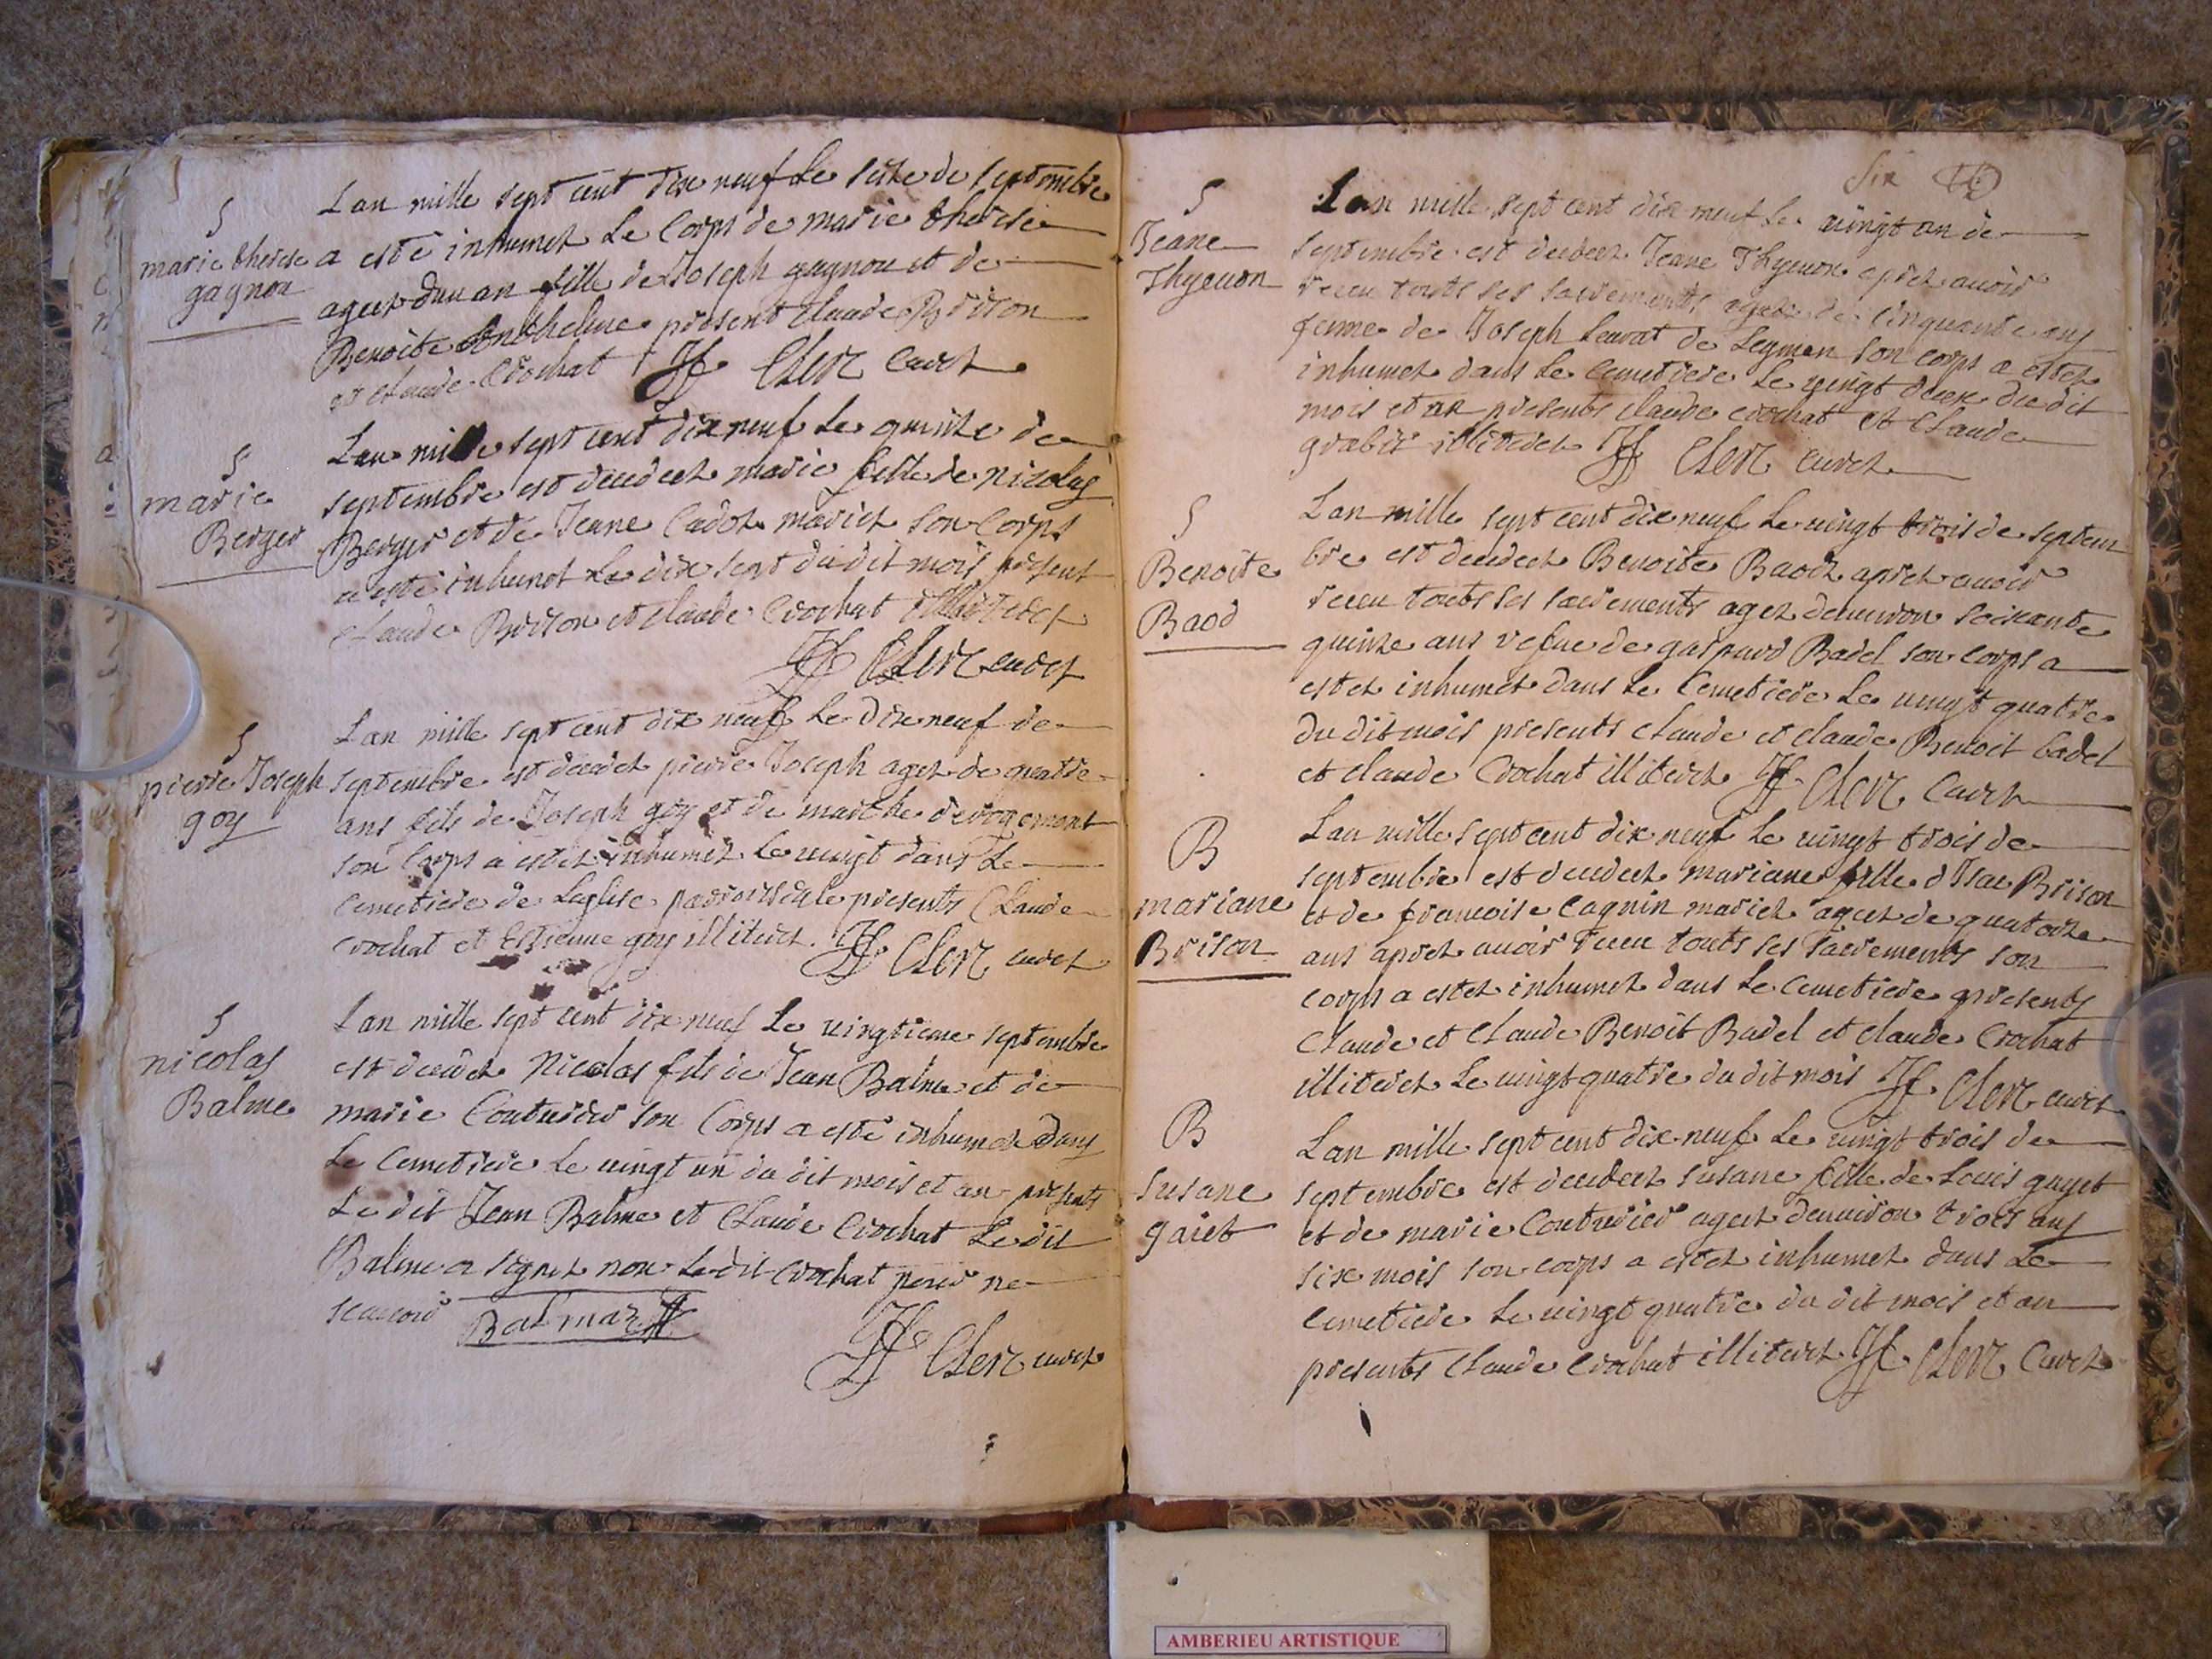 S
marie therese
gagnon
Lan mille sept cent dix neuf le seize de septembre
a esté inhumez le corps de marie therese
agee dun an fille de Joseph gagnon et de
Benoite Antheline present claude Brison
et claude Crochat JF Clerc curez
S
marie
Berger
Lan mille sept cent dix neuf le quinze de
septembre est decedeez marie fille de nicolas
Berger et de Jeane Cadoz mariez son corps
a esté inhumez le dix sept du dit mois present
claude Brison et claude Crochat illiterez
JF Clerc curez
S
pierre Joseph
goy
Lan mille sept cent dix neuf le dix neuf de
septembre est decedez pierre Joseph agez de quatre
ans fils de Joseph goy et de marthe derogemont
son corps a estez inhumez le vingt dans le
cemetiere de leglise parroissiale presents Claude
crochat et Estienne goy illiterez. JF Clerc curez
S
nicolas
Balme
Lan mille sept cent dix neuf le vingtieme septembre
est decedez Nicolas fils de Jean Balme et de
marie Couturier son Corps a esté inhumez dans
le Cemetiere le vingt un du dit mois et an presents
le dit Jean Balme et Claude Crochat le dit
Balme a signez non le dit crochat pour ne
scavoir Balmaz
JF Clerc curez
Six
S
Jeane
Thyevon
Lan mille sept cent dix neuf le vingt un de
septembre est decedeez Jeane Thyevon aprez avoir
receu touts ses sacrements agez de cinquante ans
feme de Joseph Levrat de Leymen son corps a estez
inhumez dans le cemetiere le vingt deux du dit
mois et an presents claude crochat et Claude
grabit illiterez JF Clerc curez
S
Benoite
Baod
Lan mille sept cent dix neuf le vingt trois de septem
bre est decedeez Benoite Baod aprez avoir
receu touts ses sacrements agez denviron soixante
quinze ans vefue de gaspard Badel son corps a
estez inhumez dans le Cemetiere le vingt quatre
du dit mois presents claude et claude Benoit badel
et claude Crochat illiterez JF Clerc Curez
B
mariane
Brison
Lan mille sept cent dix neuf le vingt trois de
septembre est decedeez mariane fille d Isac Brison
et de francoise Cagnin mariez ageez de quatorze
ans aprez avoir receu touts ses sacrements son
corps a estez inhumez dans le Cemetiere presents
Claude et Claude Benoit Badel et claude Crochat
illiterez le vingt quatre du dit mois JF Clerc curez
B
susane
gaiet
Lan mille sept cent dix neuf le vingt trois de
septembre est decedeez susane fille de Louis gayet
et de marie Couturier ageez denviron trois ans
six mois son corps a estez inhumez dans le
cemetiere le vingt quatre du dit mois et an
presents Claude Crochat illiterez JF Clerc Curez
AMBERIEU ARTISTIQUE